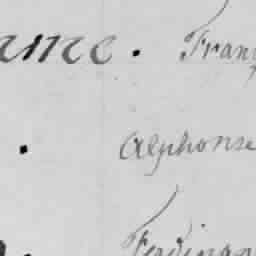 ame. Franç
. Alphonse
. Ferdinan